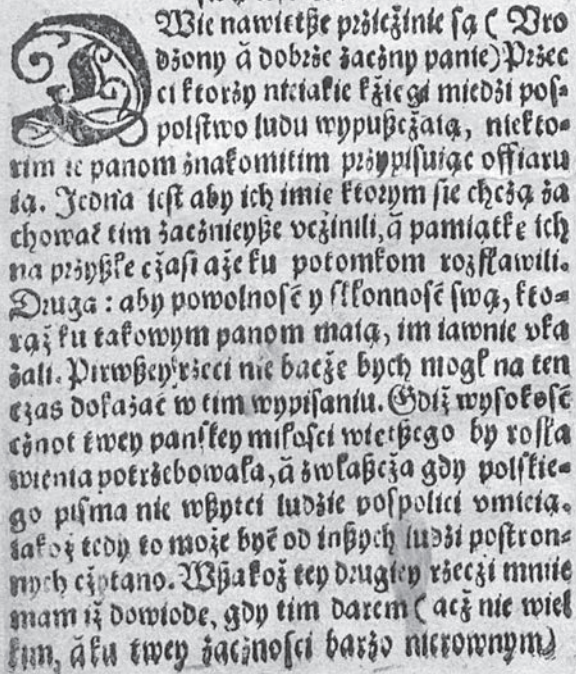 DWie nawietße prziczinie są ( Vro
dzony ā dobrze zaczny panie) Przec
ci ktorzy nieiakie kziegi miedzi pos⸗
polstwo ludu wypußczaią, niekto⸗
rim ie panom znakomitim przypisuiąc offiaru
ią. Jedna iest aby ich imie ktorym sie chczą za
chować tim zacznieyße vczinili, ā pamiątkę ich
na przyßłe czasi aże ku potomkom rozsławili.
Druga : aby powolność y skłonność swą, kto⸗
rąż ku takowym panom maią, im iawnie vka
zali. Pirwßey rzeci nie baczę bych mogł na ten
czas dokazać w tim wypisaniu. Gdiż wysokość
cznot twey pańskey miłosci wietßego by rosła
wienia potrzebowała, ā zwłaßcza gdy polskie⸗
go pisma nie wßytci ludzie pospolici vmieią.
iakoż tedy to może być od inßych ludzi postron⸗
nych czytano. Wßakoż tey drugiey rzeczi mnie
mam iż dowiode, gdy tim darem ( acż nie wiel
kim, ā ku twey zaczności barzo nierownym)